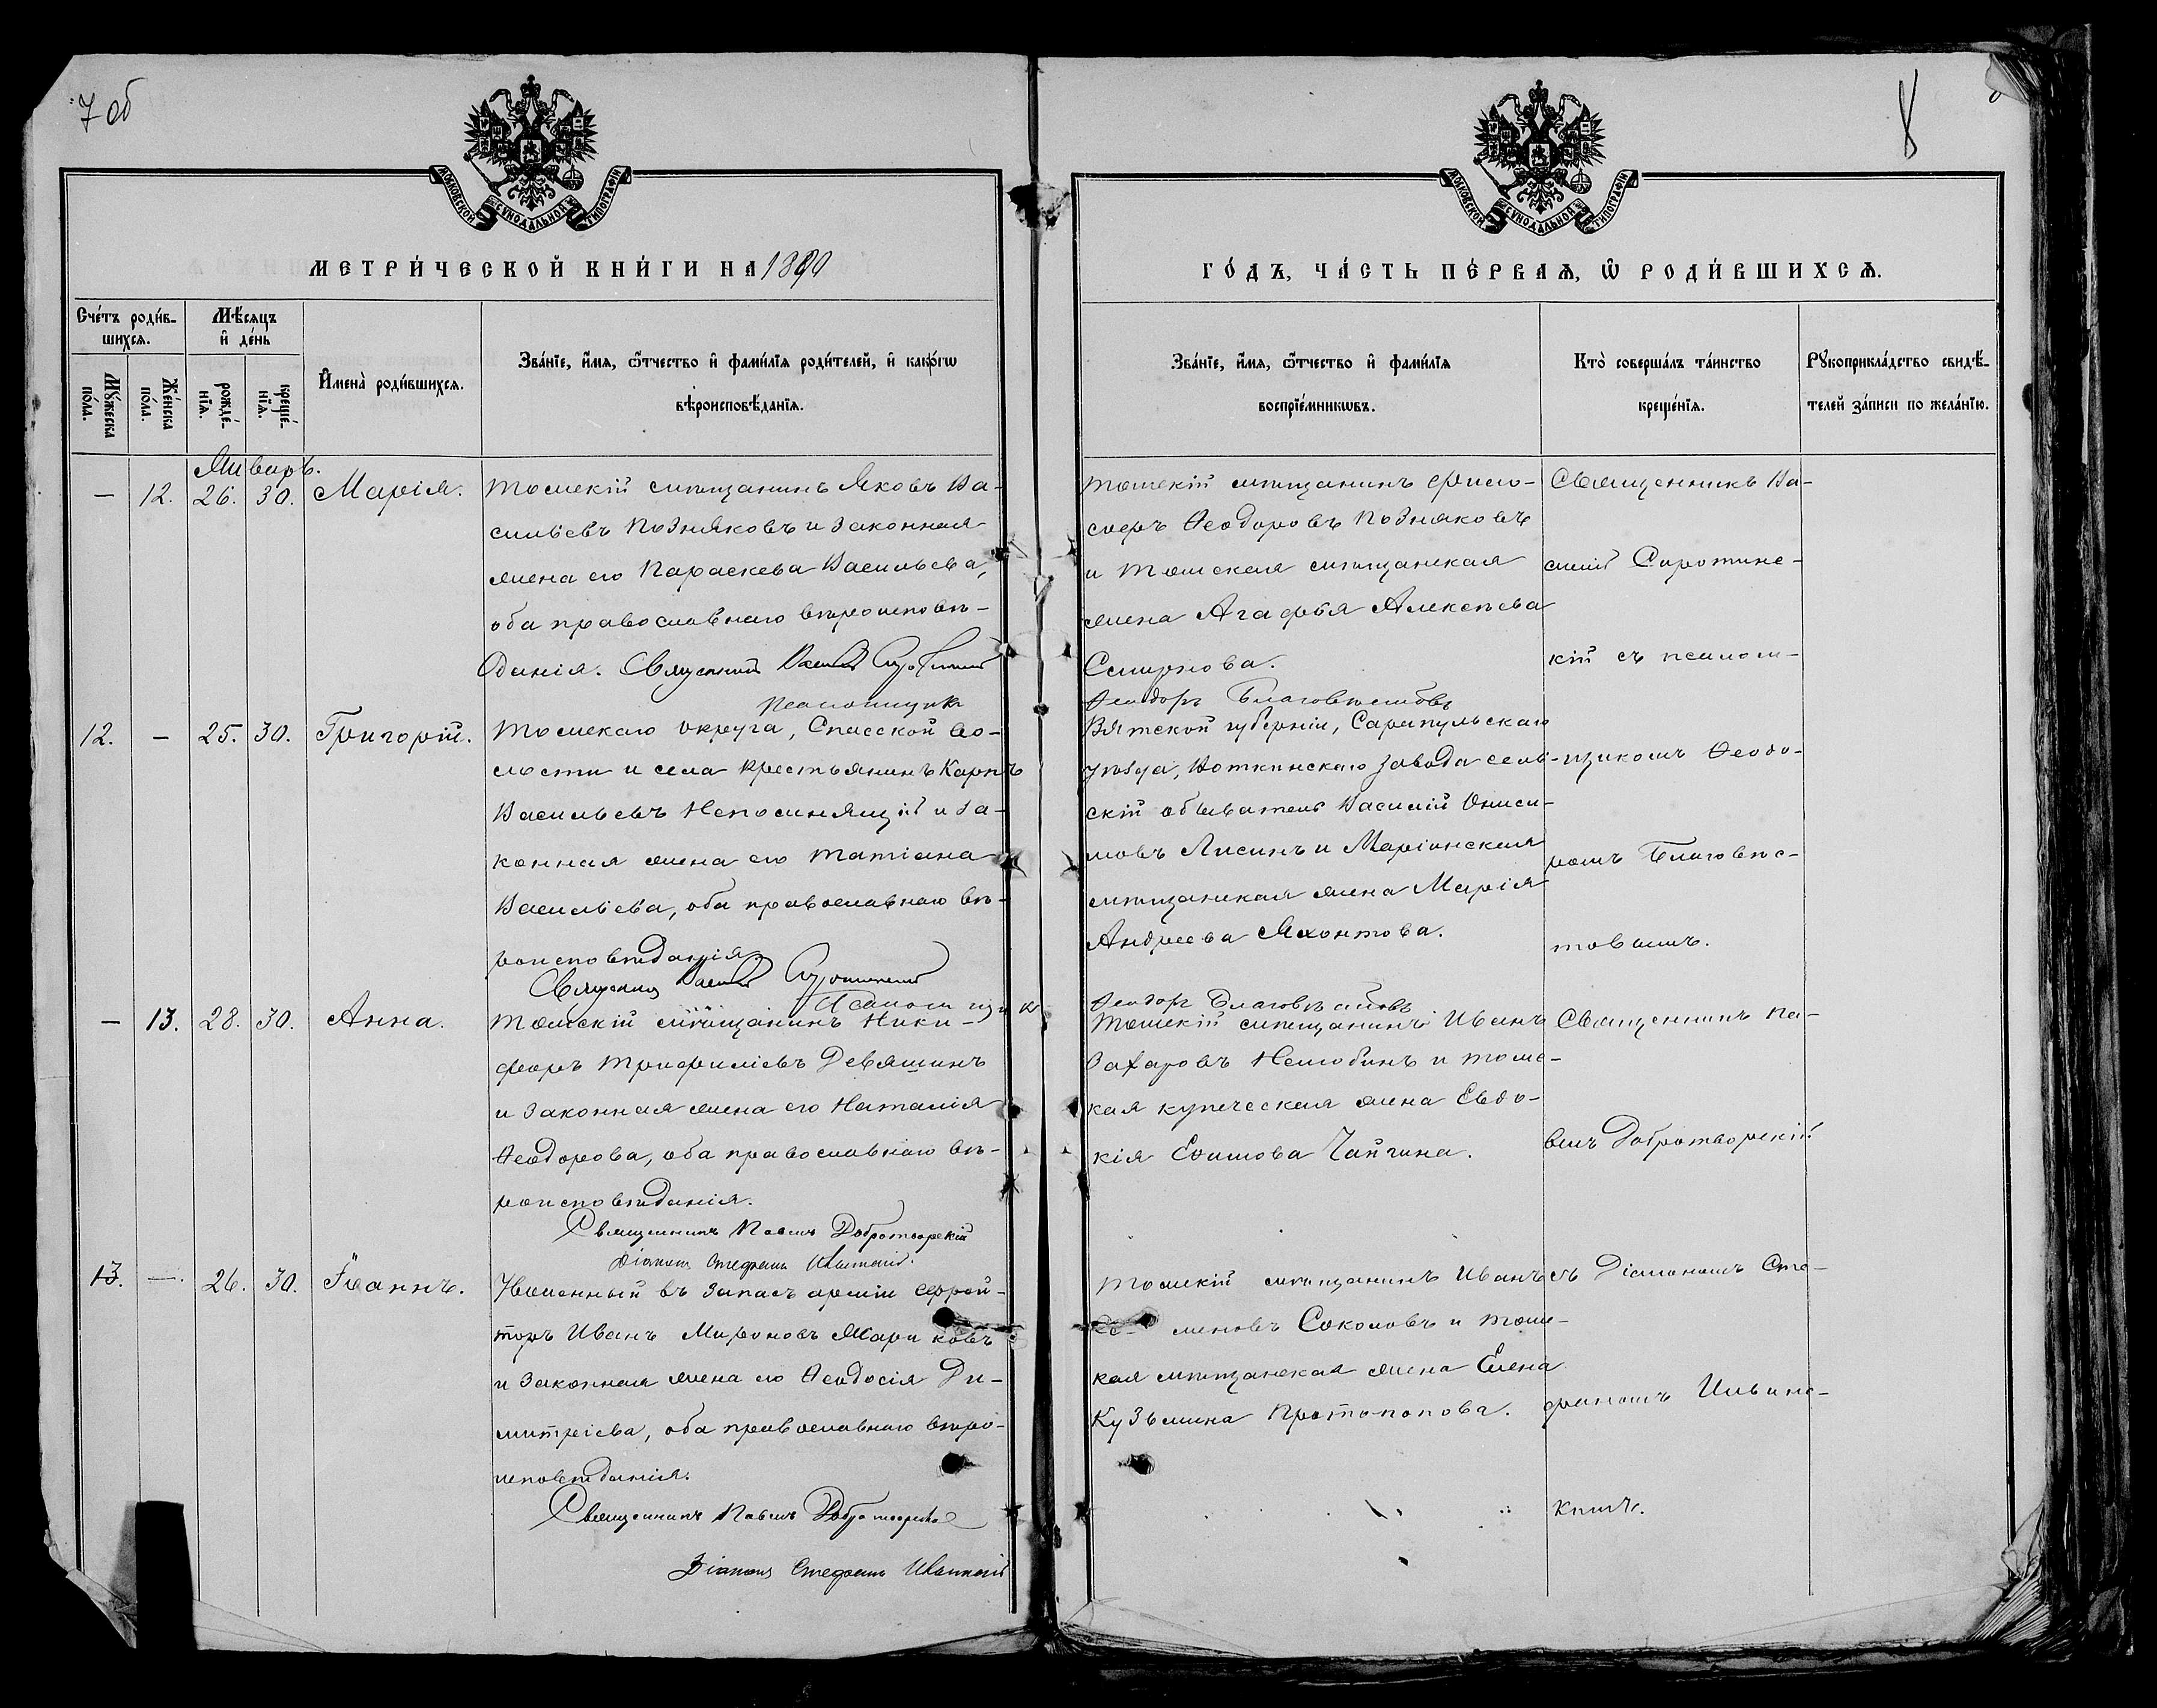 7 об
8
МОСКОВСКОЙ СѴНОДАЛЬНОЙ ТИПОГРАФІИ
МОСКОВСКОЙ СѴНОДАЛЬНОЙ ТИПОГРАФІИ
МЕТРИ́ЧЕСКОЙ КНИ́ГИ НА 1890
ГО́ДЪ, ЧА́СТЬ ПЕ́РВАѦ, Ѡ҆ РОДИ́ВШИХСѦ.
Сче́тъ роди́в-
шихсѧ.
Мѣ́сѧцъ
и҆ де́нь
Мꙋ́жеска
по́ла.
Же́нска
по́ла.
рожде́-
нїѧ.
креще́-
нїѧ.
И҆мена̀ роди́вшихсѧ.
Зва́нїе, и҆́мѧ, ѻ҆́тчество и҆ фами́лїѧ роди́телей, и҆ како́гѡ
вѣроисповѣ́данїѧ.
Зва́нїе, и҆́мѧ, ѻ҆́тчество и҆ фами́лїѧ
воспрїе́мникѡвъ.
Кто̀ соверша́лъ та́инство
креще́нїѧ.
Рꙋкоприкла́дство свидѣ́-
телей за́писи по жела́нїю.
Январь.
— 12. 26. 30. Марія.
Томскій мѣщанинъ Яковъ Ва-
сильевъ Поздняковъ и законная
жена его Параскева Васильева,
оба православнаго вѣроисповѣ-
данія. Священник Василій Сиротинскій
Псаломщикъ
Томскій мѣщанинъ Философеръ Ѳеодоровъ Поздняковъ
и Томская мѣщанская
жена Агафья Алексѣева
Смирнова.
Ѳеодоръ Благовѣстовъ
Священникъ Ва-
силій Сиротинс-
кій съ псалом-
12. — 25. 30. Григорій.
Томскаго округа, Спасской во-
лости и села крестьянинъ Карпъ
Васильевъ Непосинящій и за-
конная жена его Татіана
Васильева, оба православнаго вѣ-
роисповѣданія.
Священник Василій Сиротинскій
Псаломщикъ
Вятской губерніи, Сарапульскаго
уѣзда, Воткинскаго завода сель-
скій обыватель Василій Ониси-
мовъ Лисинъ и Маріинская
мѣщанская жена Марія
Андреева Яхонтова.
Ѳеодоръ Благовѣстовъ
щикомъ Ѳеодо-
ромъ Благовѣс-
товымъ.
— 13. 28. 30. Анна.
Томскій мѣщанинъ Ники-
форъ Трифиліевъ Девяшинъ
и законная жена его Наталія
Ѳеодорова, оба православнаго вѣ-
роисповѣданія.
Священникъ Павелъ Добротворскій
Діаконъ Стефанъ Ильинскій.
Томскій мѣщанинъ Иванъ
Захаровъ Нелюбинъ и томс-
кая купеческая жена Евдо-
кія Ефимова Чайгина.
Священникъ Па-
велъ Добротворскій
13. —. 26. 30. Іоаннъ.
Уволенный въ запасъ арміи ефрей-
торъ Иванъ Мироновъ Жариковъ
и законная жена его Ѳеодосія Ди-
митріева, оба православнаго вѣро-
исповѣданія.
Священникъ Павелъ Добротворскій
Діаконъ Стефанъ Ильинскій
Томскій мѣщанинъ Иванъ
Се- меновъ Соколовъ и томс-
кая мѣщанская жена Елена
Кузьмина Протопопова.
съ Діакономъ Сте-
фаномъ Ильинс-
кимъ.